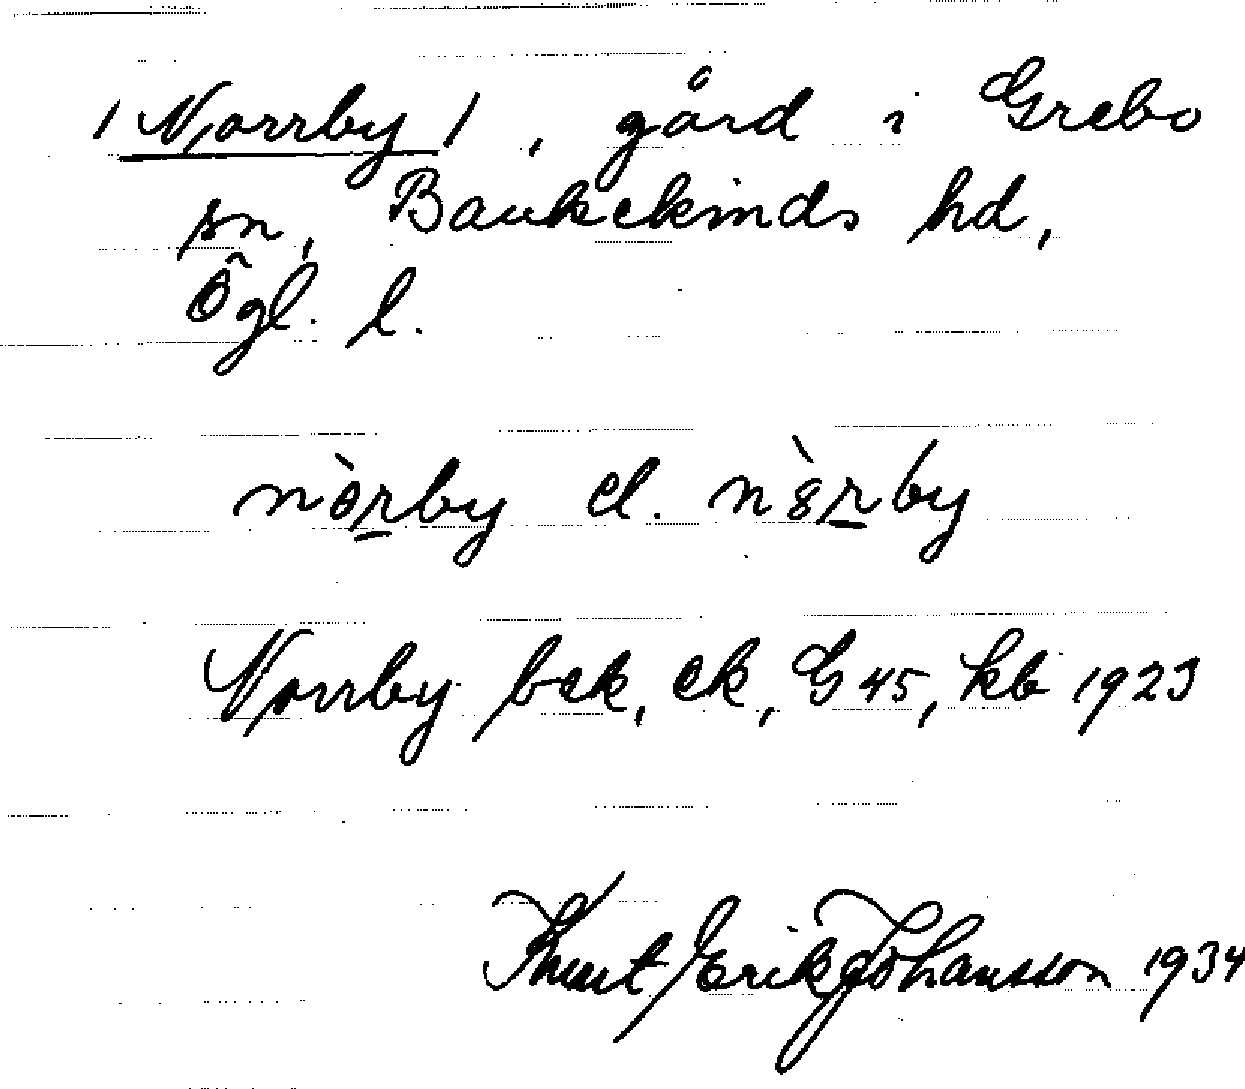 /Norrby/, gård i Grebo
sn, Bankekinds hd,
Ögl. l.
nòrby el. n8̀rby
Norrby bek, ek, G 45, kb 1923
Knut Erik Johansson 1934